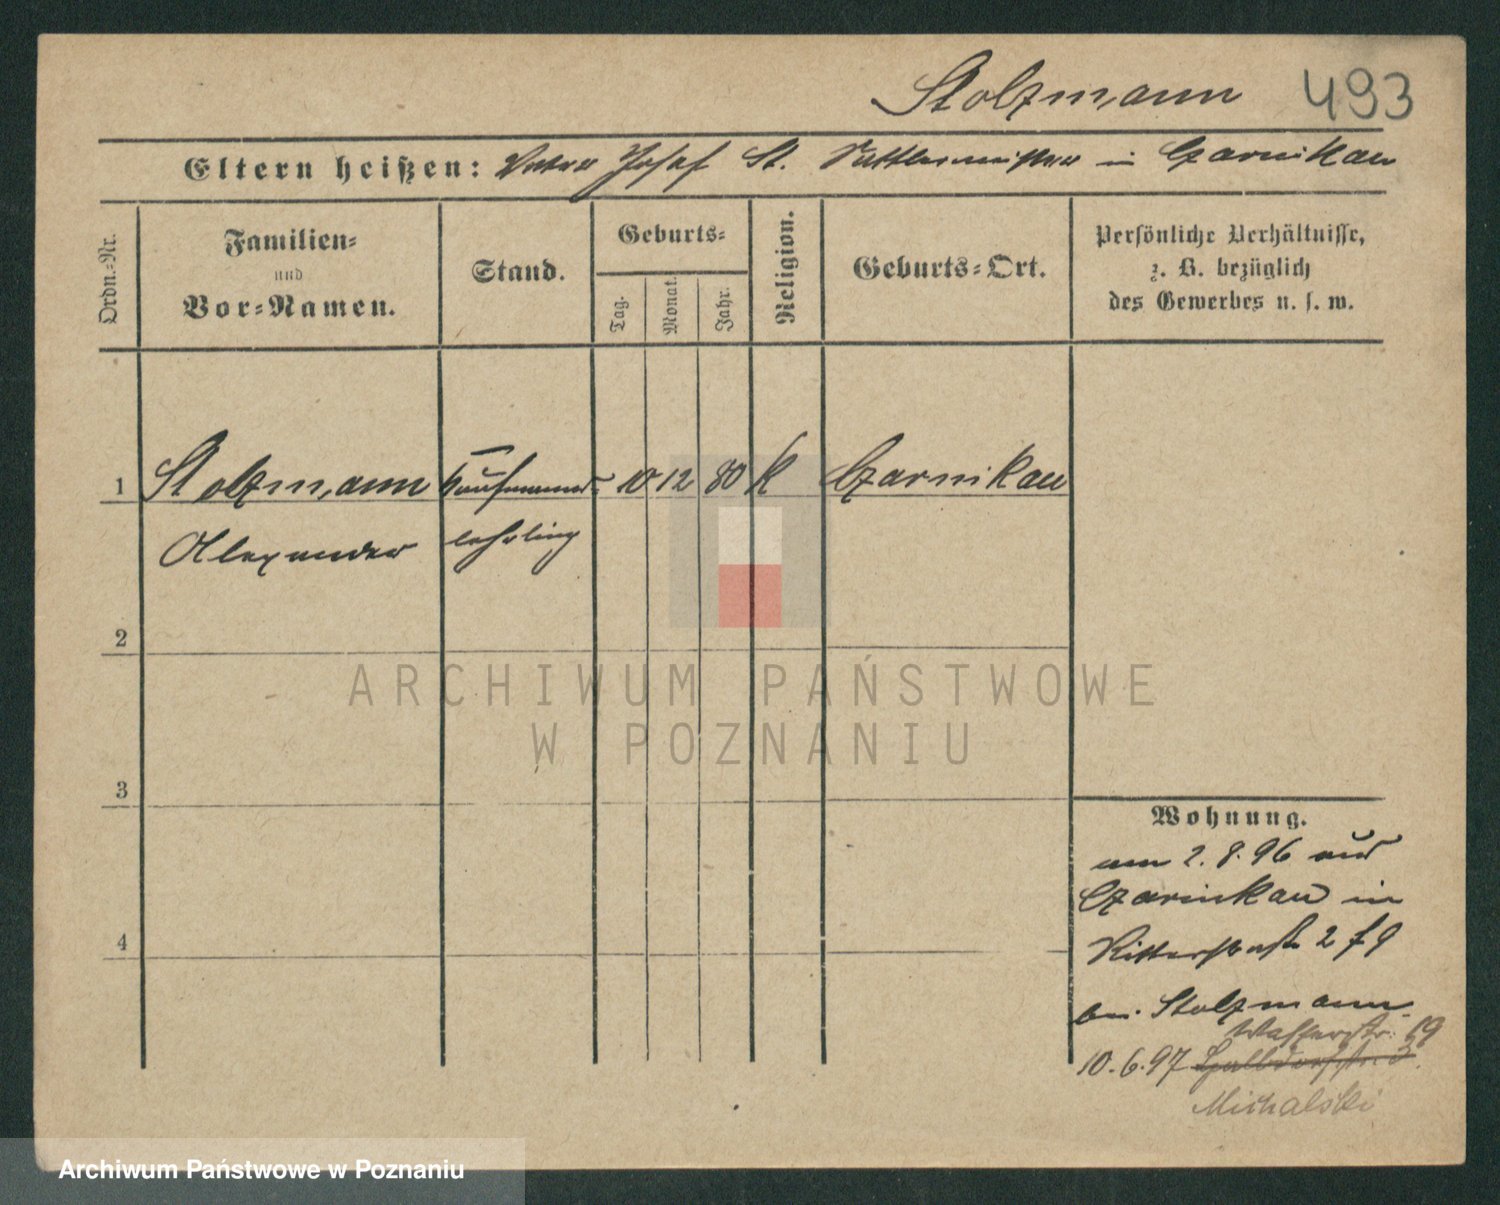 Stolzmann 493
Eltern heißen: Vater Josef St. Sattlermeister in Czarnikau
Ordn.=Nr.
Familien=
und
Vor=Namen.
Stand.
Geburts=
Tag.
Monat.
Jahr.
Religion.
Geburts=Ort.
Persönliche Verhältnisse,
z. B. bezüglich
des Gewerbes u. s. w.
1 Stolzmann Kaufmanns 10 12 80 K Czarnikau
Alexander lehrling
2
3
4
Wohnung.
am 2. 8. 96 aus
Czarnikau in
Ritterstraße 2
bei Stolzmann
Wasserstr. 19
10. 6. 97
Michalski
ARCHIWUM PAŃSTWOWE
W POZNANIU
Archiwum Państwowe w Poznaniu